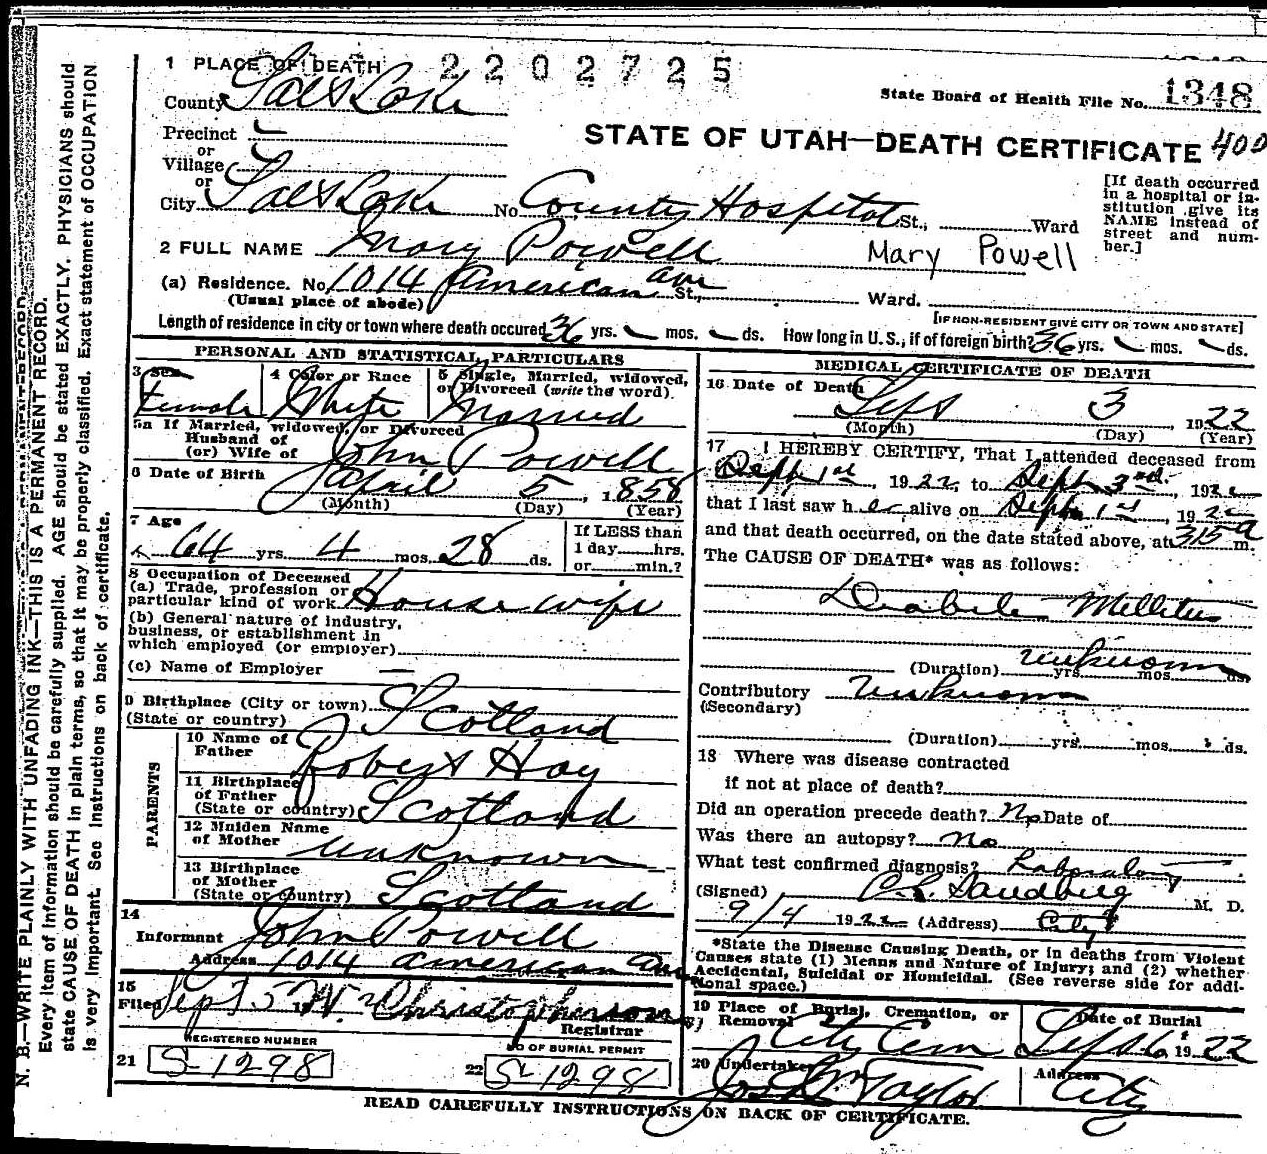 1 PLACE OF DEATH 2202725
County Salt Lake
State Board of Health File No. 1348
Precinct
or
Village
or
STATE OF UTAH—DEATH CERTIFICATE 400
City Salt Lake No County Hospital St., Ward
[If death occurred in a hospital or institution give its NAME instead of street and number.]
2 FULL NAME Mary Powell Mary Powell
(a) Residence. No. 1014 American Ave St., Ward.
(Usual place of abode)
[IF NON-RESIDENT GIVE CITY OR TOWN AND STATE]
Length of residence in city or town where death occured 36 yrs. mos. ds. How long in U. S., if of foreign birth? 36 yrs. mos. ds.
PERSONAL AND STATISTICAL PARTICULARS
3 Sex 4 Color or Race 5 Single, Married, widowed, or Divorced (write the word).
Female White Married
5a If Married, widowed, or Divorced
Husband of
(or) Wife of John Powell
6 Date of Birth April 5, 1858
(Month) (Day) (Year)
7 Age
64 yrs. 4 mos. 28 ds.
If LESS than
1 day hrs.
or min.?
8 Occupation of Deceased
(a) Trade, profession or
particular kind of work House wife
(b) General nature of industry,
business, or establishment in
which employed (or employer)
(c) Name of Employer —
9 Birthplace (City or town)
(State or country) Scotland
PARENTS
10 Name of
Father Robert Hoy
11 Birthplace
of Father
(State or country) Scotland
12 Maiden Name
of Mother unknown
13 Birthplace
of Mother
(State or country) Scotland
14
Informant John Powell
Address 1014 American Ave
15
Filed Sep 5 W. Christopherson
Registrar
REGISTERED NUMBER
21 S-1298
NO OF BURIAL PERMIT
22 S-1298
MEDICAL CERTIFICATE OF DEATH
16 Date of Death
Sept 3, 1922
(Month) (Day) (Year)
17 I HEREBY CERTIFY, That I attended deceased from
Sept 1st, 1922 to Sept 3rd, 1922
that I last saw her alive on Sept 1st, 1922
and that death occurred, on the date stated above, at 315 a m.
The CAUSE OF DEATH* was as follows:
Diabetes Mellitus
(Duration) unknown yrs. mos. ds.
Contributory unknown
(Secondary)
(Duration) yrs. mos. ds.
18 Where was disease contracted
if not at place of death?
Did an operation precede death? No Date of
Was there an autopsy? No
What test confirmed diagnosis? Laboratory
(Signed) Sandberg M. D.
9/4 1922 (Address) City
*State the Disease Causing Death, or in deaths from Violent
Causes state (1) Means and Nature of Injury; and (2) whether
Accidental, Suicidal or Homicidal. (See reverse side for addi-
tional space.)
19 Place of Burial, Cremation, or
Removal City Cem
Date of Burial
Sept 6 1922
20 Undertaker Taylor
Address City
READ CAREFULLY INSTRUCTIONS ON BACK OF CERTIFICATE.
N. B.—WRITE PLAINLY WITH UNFADING INK—THIS IS A PERMANENT RECORD.
Every item of information should be carefully supplied. AGE should be stated EXACTLY. PHYSICIANS should
state CAUSE OF DEATH in plain terms, so that it may be properly classified. Exact statement of OCCUPATION
is very important. See instructions on back of certificate.